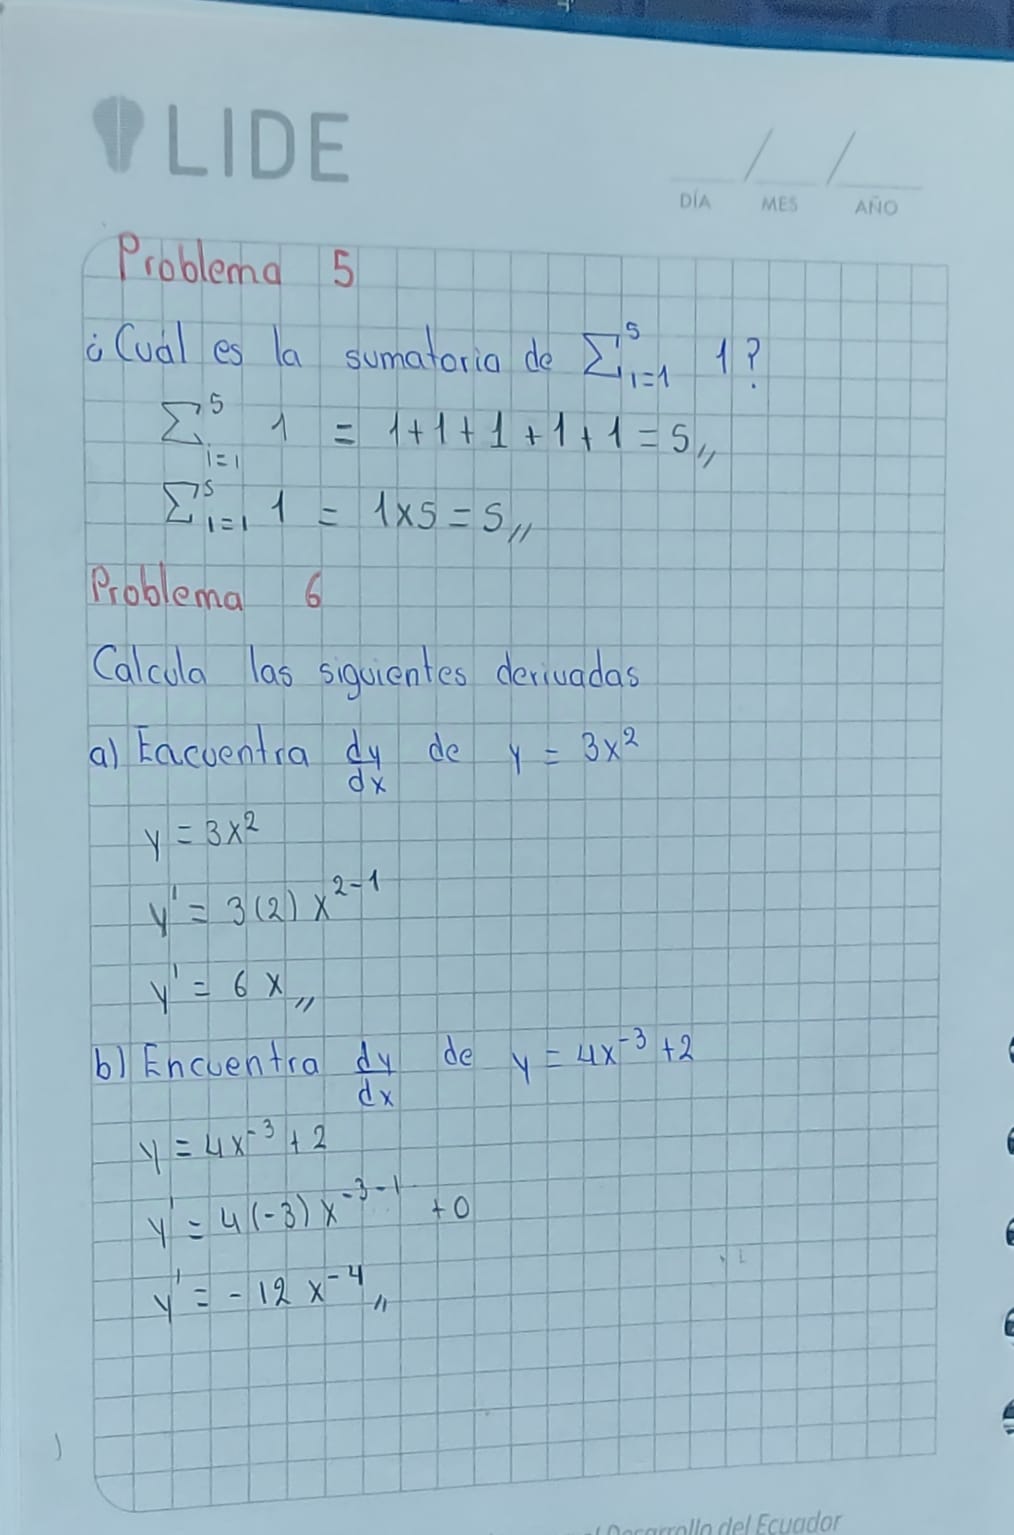 LIDE
DÍA MES AÑO
Problema 5
¿Cuál es la sumatoria de ∑⁵ᵢ₌₁ 1?
∑⁵ᵢ₌₁ 1 = 1+1+1+1+1 = 5,,
∑⁵ᵢ₌₁ 1 = 1x5 = 5,,
Problema 6
Calcula las siguientes derivadas
a) Eacuentra dy/dx de y = 3x²
y = 3x²
y' = 3(2) x²⁻¹
y' = 6x,,
b) Encuentra dy/dx de y = 4x⁻³ + 2
y = 4x⁻³ + 2
y' = 4(-3) x⁻³⁻¹ + 0
y' = -12 x⁻⁴,,
Desarrollo del Ecuador